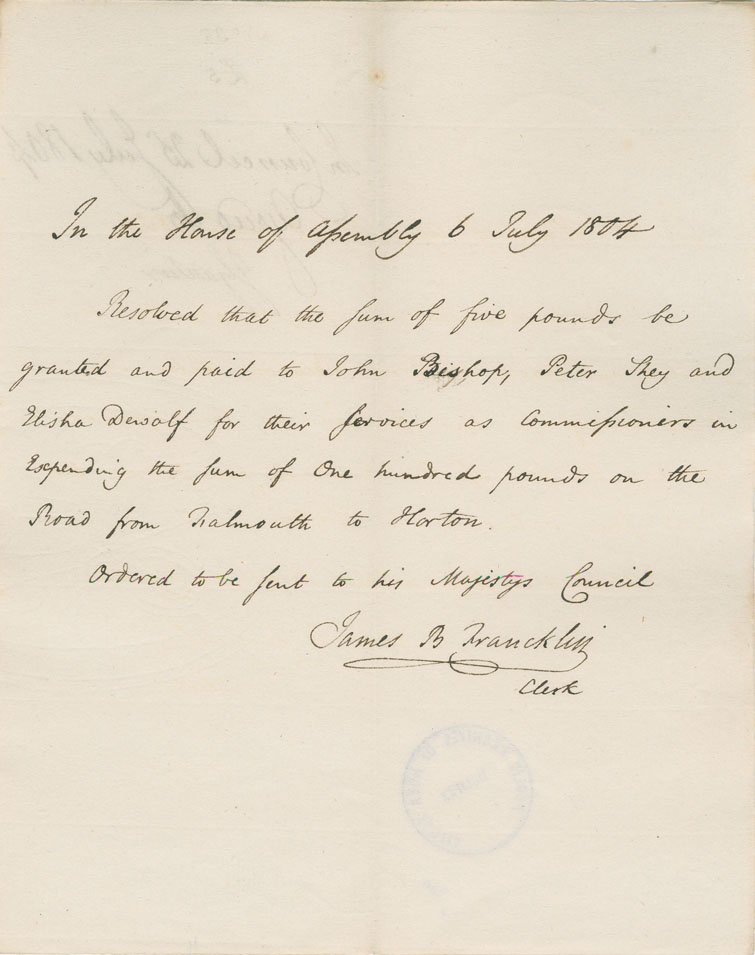 In the House of Assembly 6 July 1804
Resolved that the sum of five pounds be
granted and paid to John Bishop, Peter Shey and
Elisha Dewolf for their services as Commissioners in
Expending the sum of One hundred pounds on the
Road from Falmouth to Horton.
Ordered to be sent to his Majestys Council
James B Francklin
Clerk